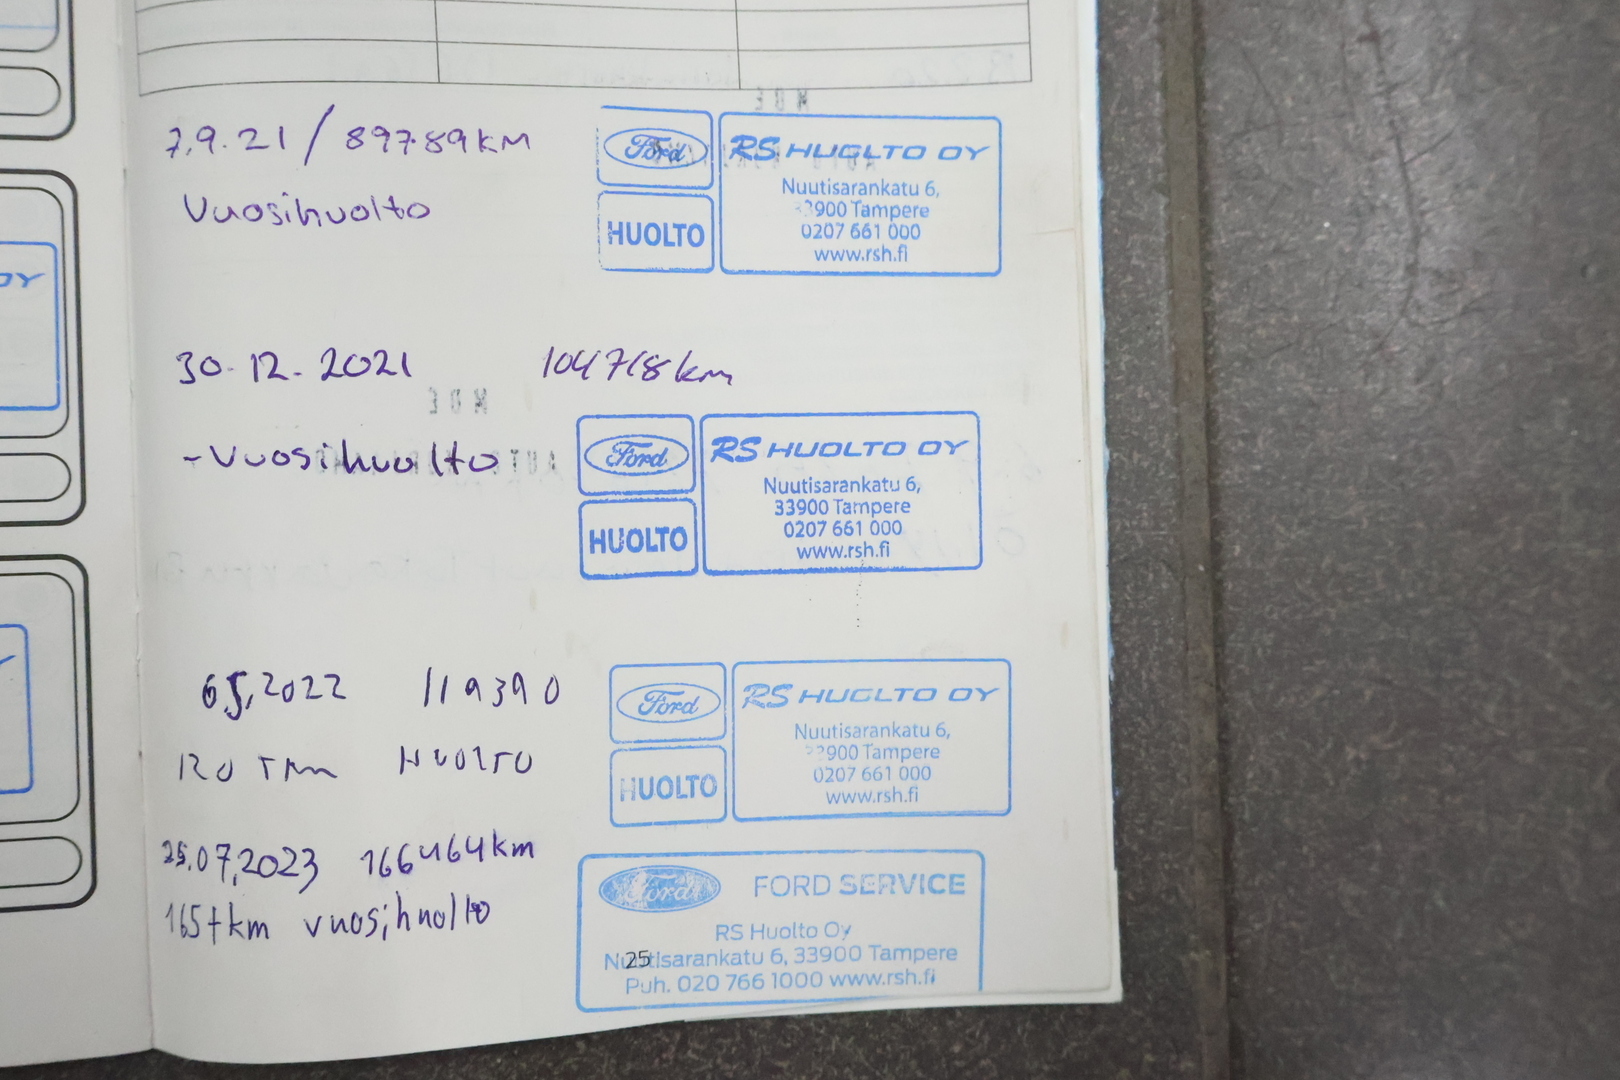 7.9.21 / 89789 km
Vuosihuolto
Ford
HUOLTO
RS HUOLTO OY
Nuutisarankatu 6,
33900 Tampere
0207 661 000
www.rsh.fi
30.12.2021 104718 km
- Vuosihuolto
Ford
HUOLTO
RS HUOLTO OY
Nuutisarankatu 6,
33900 Tampere
0207 661 000
www.rsh.fi
6.5.2022 119390
120 TKM HUOLTO
Ford
HUOLTO
RS HUOLTO OY
Nuutisarankatu 6,
33900 Tampere
0207 661 000
www.rsh.fi
25.07.2023 166464 km
165 tkm vuosihuolto
Ford
FORD SERVICE
RS Huolto Oy
Nuutisarankatu 6, 33900 Tampere
Puh. 020 766 1000 www.rsh.fi
25
OY